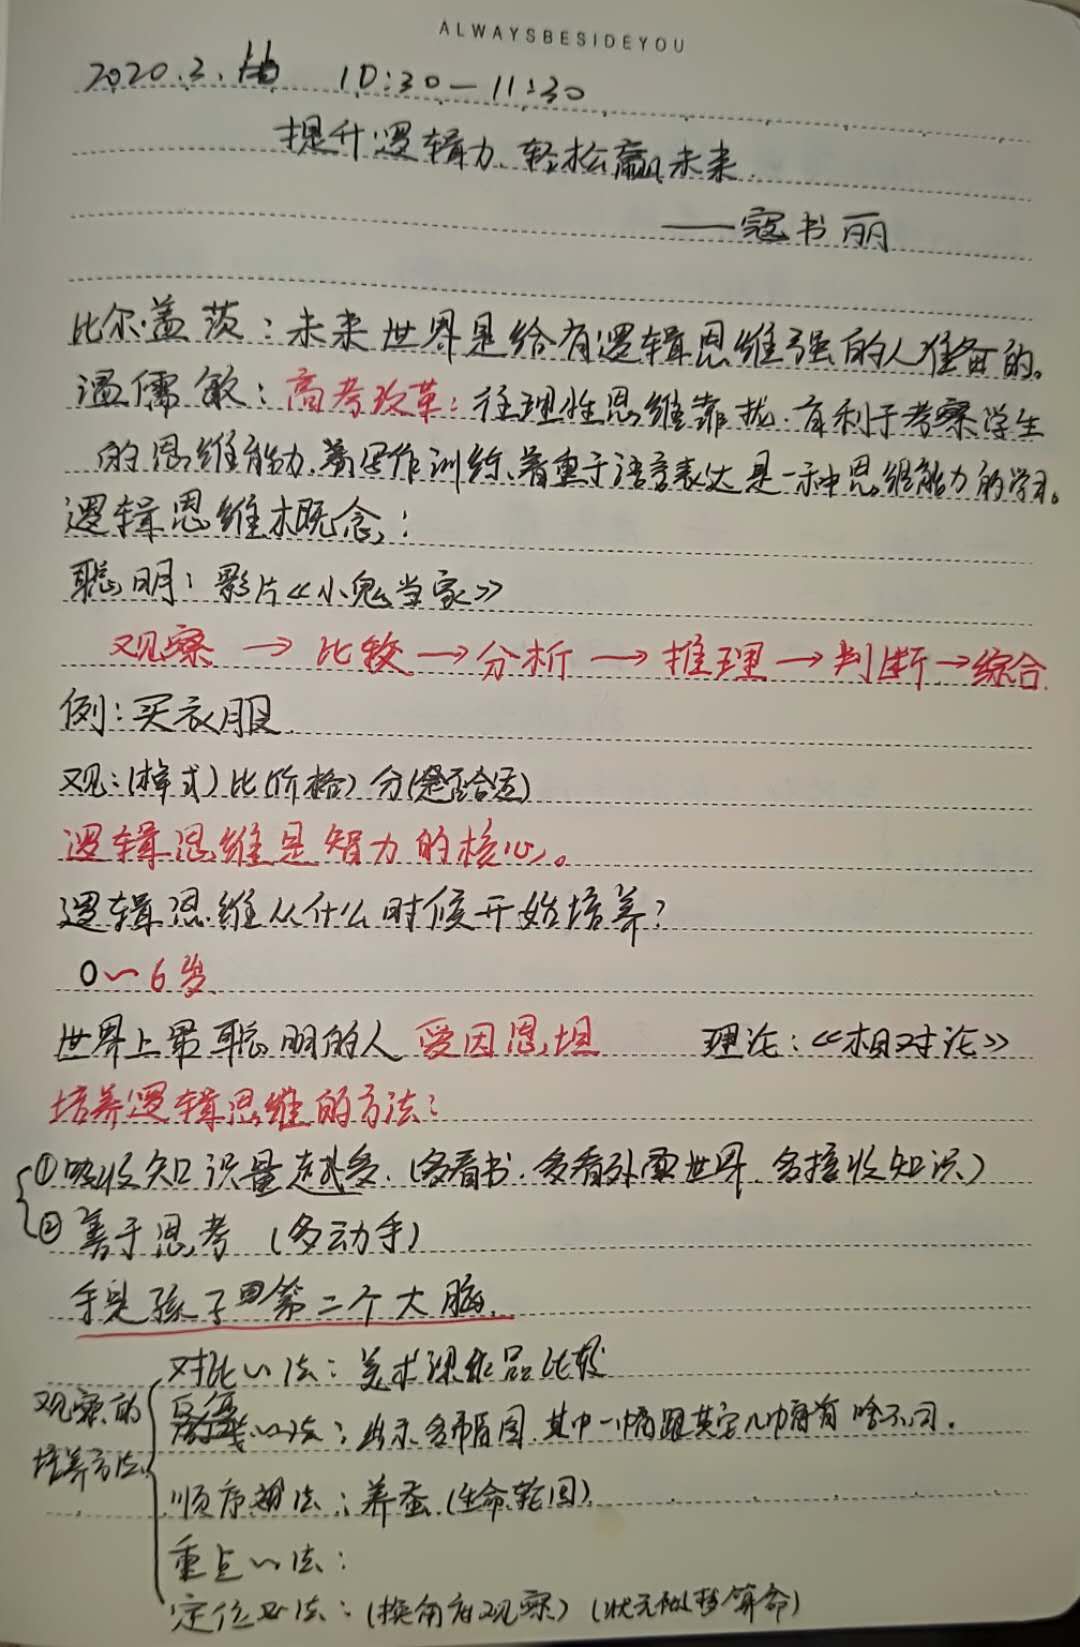 ALWAYSBESIDEYOU
2020.3. 10:30—11:30
提升逻辑力.轻松赢未来.
——寇书丽
比尔·盖茨:未来世界是给有逻辑思维强的人准备的。
温儒敏:高考改革:往理性思维靠拢.有利于考察学生
的思维能力.写作训练、着重于语言表达是一种思维能力的学习。
逻辑思维概念:
聪明:影片《小鬼当家》
观察→比较→分析→推理→判断→综合.
例:买衣服.
观:(样式)比(价格)分(是否合适)
逻辑思维是智力的核心。
逻辑思维从什么时候开始培养?
0~6岁.
世界上最聪明的人 爱因思坦 理论:《相对论》
培养逻辑思维的方法:
①吸收知识量越多.(多看书.多看外面世界.多接收知识)
②善于思考 (多动手)
手是孩子的第二个大脑.
观察的培养方法
对比~法:美术课作品比较
~法:出示多幅图.其中一幅跟其它几幅有啥不同.
顺序观法:养蚕.(生命轮回)
重点~法:
定位观法:(换角度观察)(状元 算命)